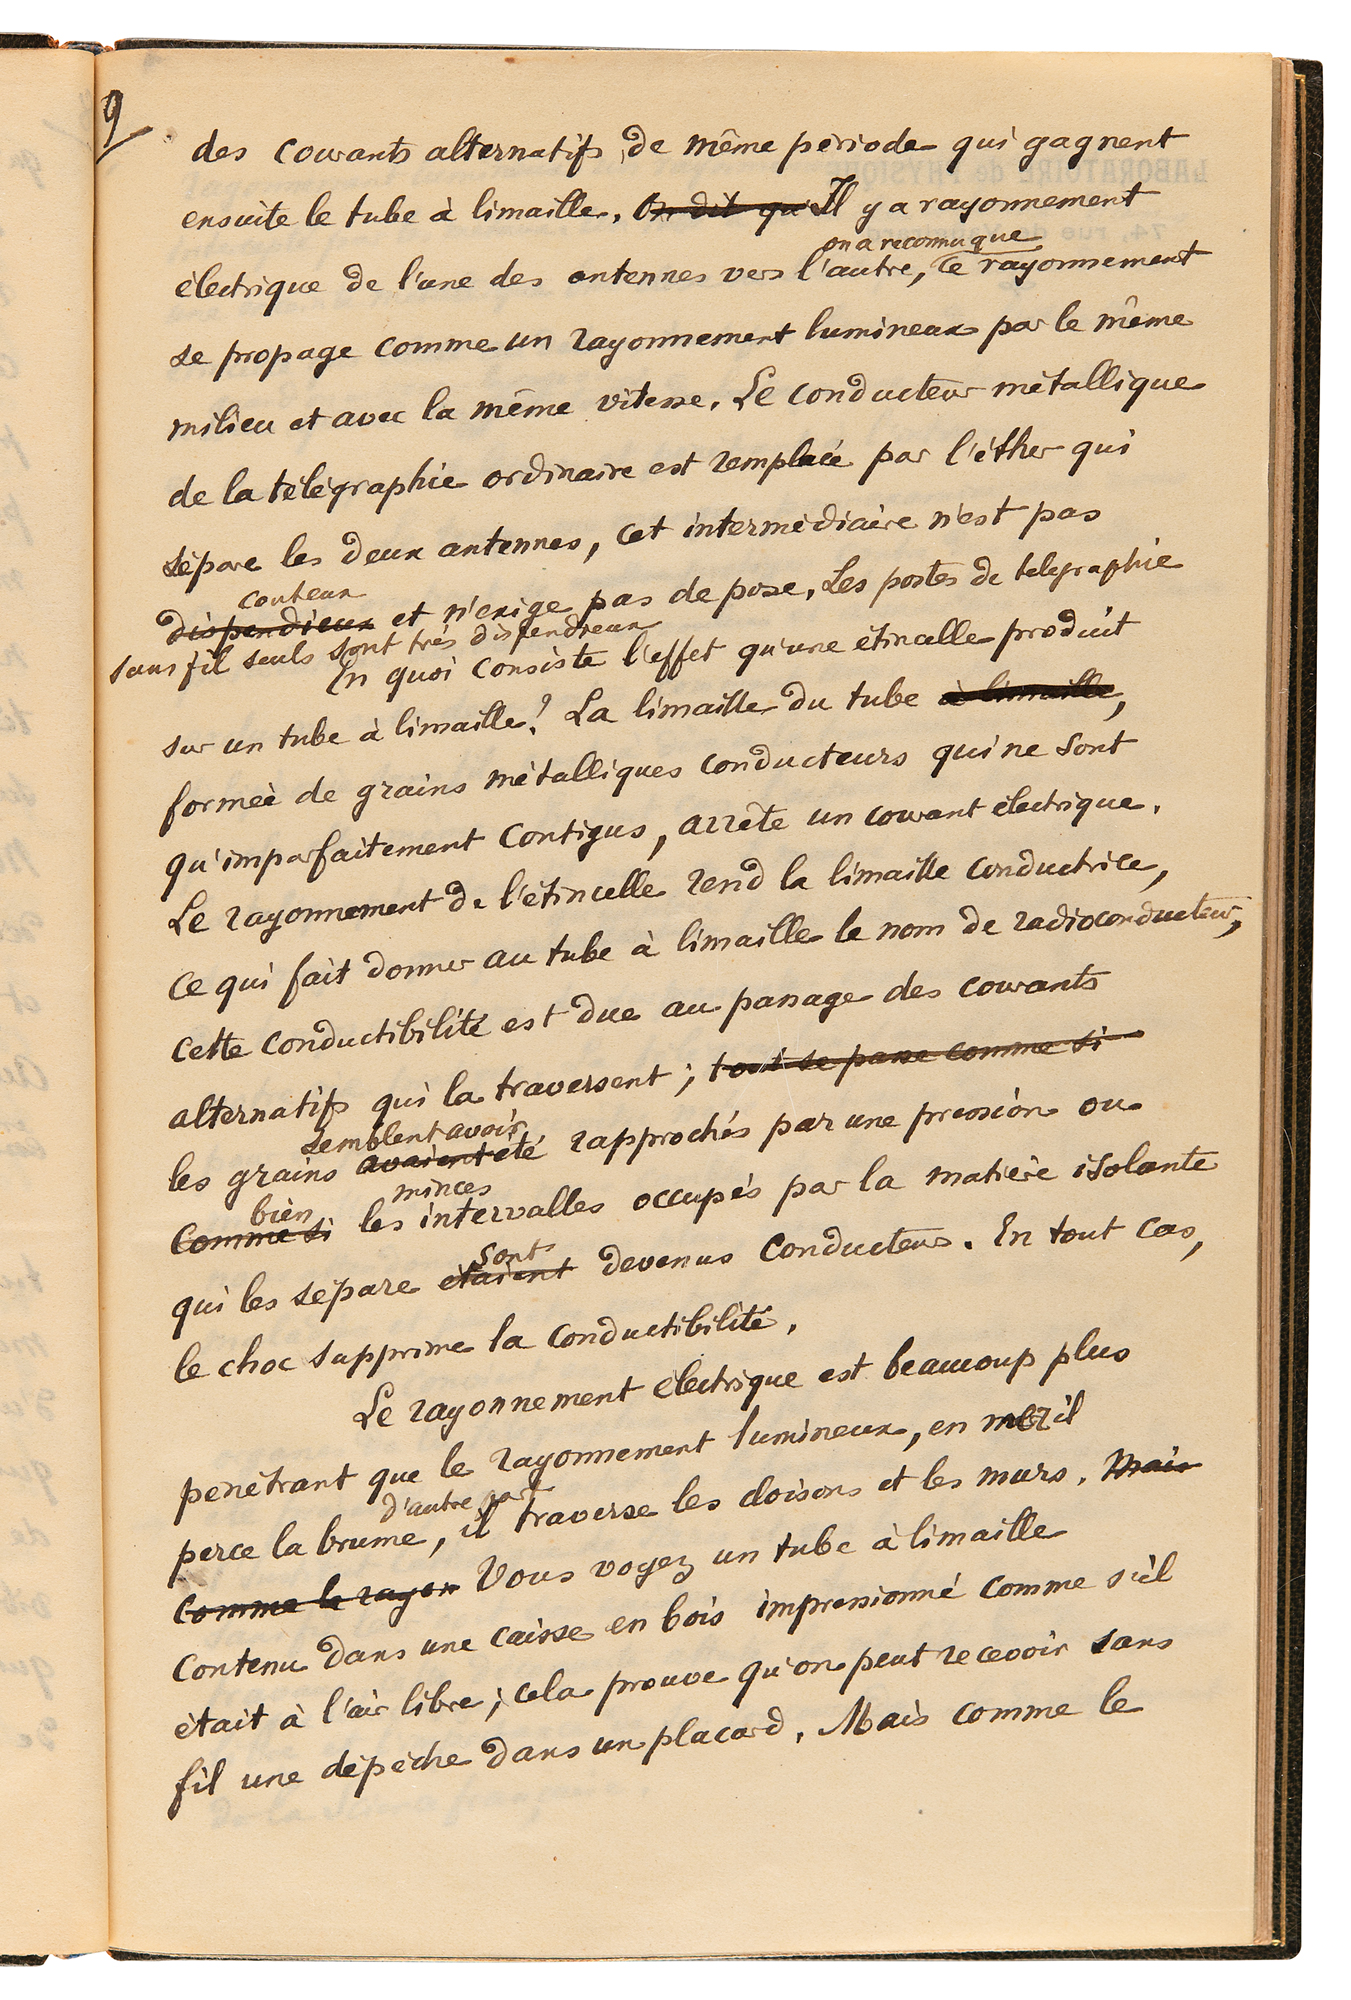 9
des courants alternatifs de même période qui gagnent
ensuite le tube à limaille. On dit qu' Il y a rayonnement
on a reconnu que
électrique de l'une des antennes vers l'autre, ce rayonnement
se propage comme un rayonnement lumineux par le même
milieu et avec la même vitesse. Le conducteur métallique
de la télégraphie ordinaire est remplacé par l'éther qui
sépare les deux antennes, cet intermédiaire n'est pas
couteux
dispendieux et n'exige pas de pose. Les postes de telegraphie
sans fil seuls sont très dispendieux
En quoi consiste l'effet qu'une étincelle produit
sur un tube à limaille? La limaille du tube à limaille,
formée de grains métalliques conducteurs qui ne sont
qu'imparfaitement contigus, arrête un courant électrique.
Le rayonnement de l'étincelle rend la limaille conductrice,
ce qui fait donner au tube à limaille le nom de radioconducteur,
cette conductibilité est due au passage des courants
alternatifs qui la traversent; tout se passe comme si
semblent avoir
les grains avaient été rapprochés par une pression ou
bien minces
comme si les intervalles occupés par la matière isolante
sont
qui les sépare étaient devenus conducteurs. En tout cas,
le choc supprime la conductibilité.
Le rayonnement électrique est beaucoup plus
pénétrant que le rayonnement lumineux, en mer il
d'autre part
perce la brume, il traverse les cloisons et les murs. Mais
comme le rayon Vous voyez un tube à limaille
contenu dans une caisse en bois impressionné comme s'il
était à l'air libre; cela prouve qu'on peut recevoir sans
fil une dépêche dans un placard. Mais comme le
LABORATOIRE de PHYSIQUE